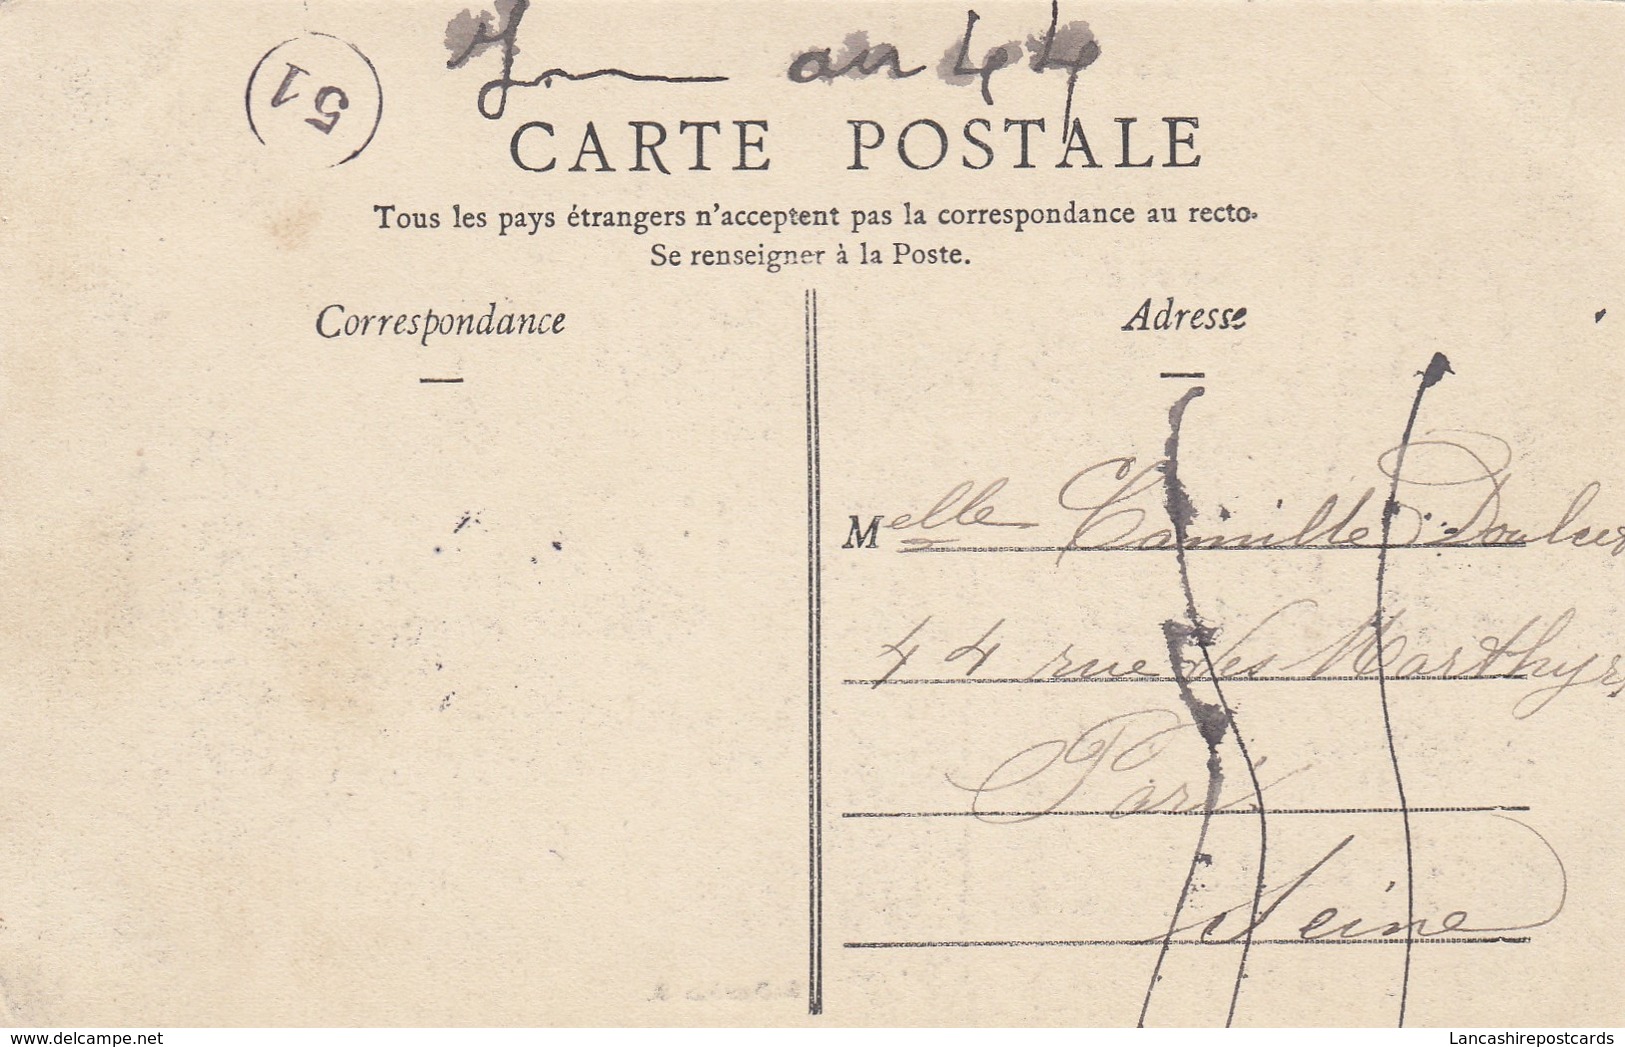 51
In au 44
CARTE POSTALE
Tous les pays étrangers n'acceptent pas la correspondance au recto.
Se renseigner à la Poste.
Correspondance
Adresse
Melle Camille Doulcet
44 rue des Marthyrs
Paris
Seine
delcampe.net
Lancashirepostcards